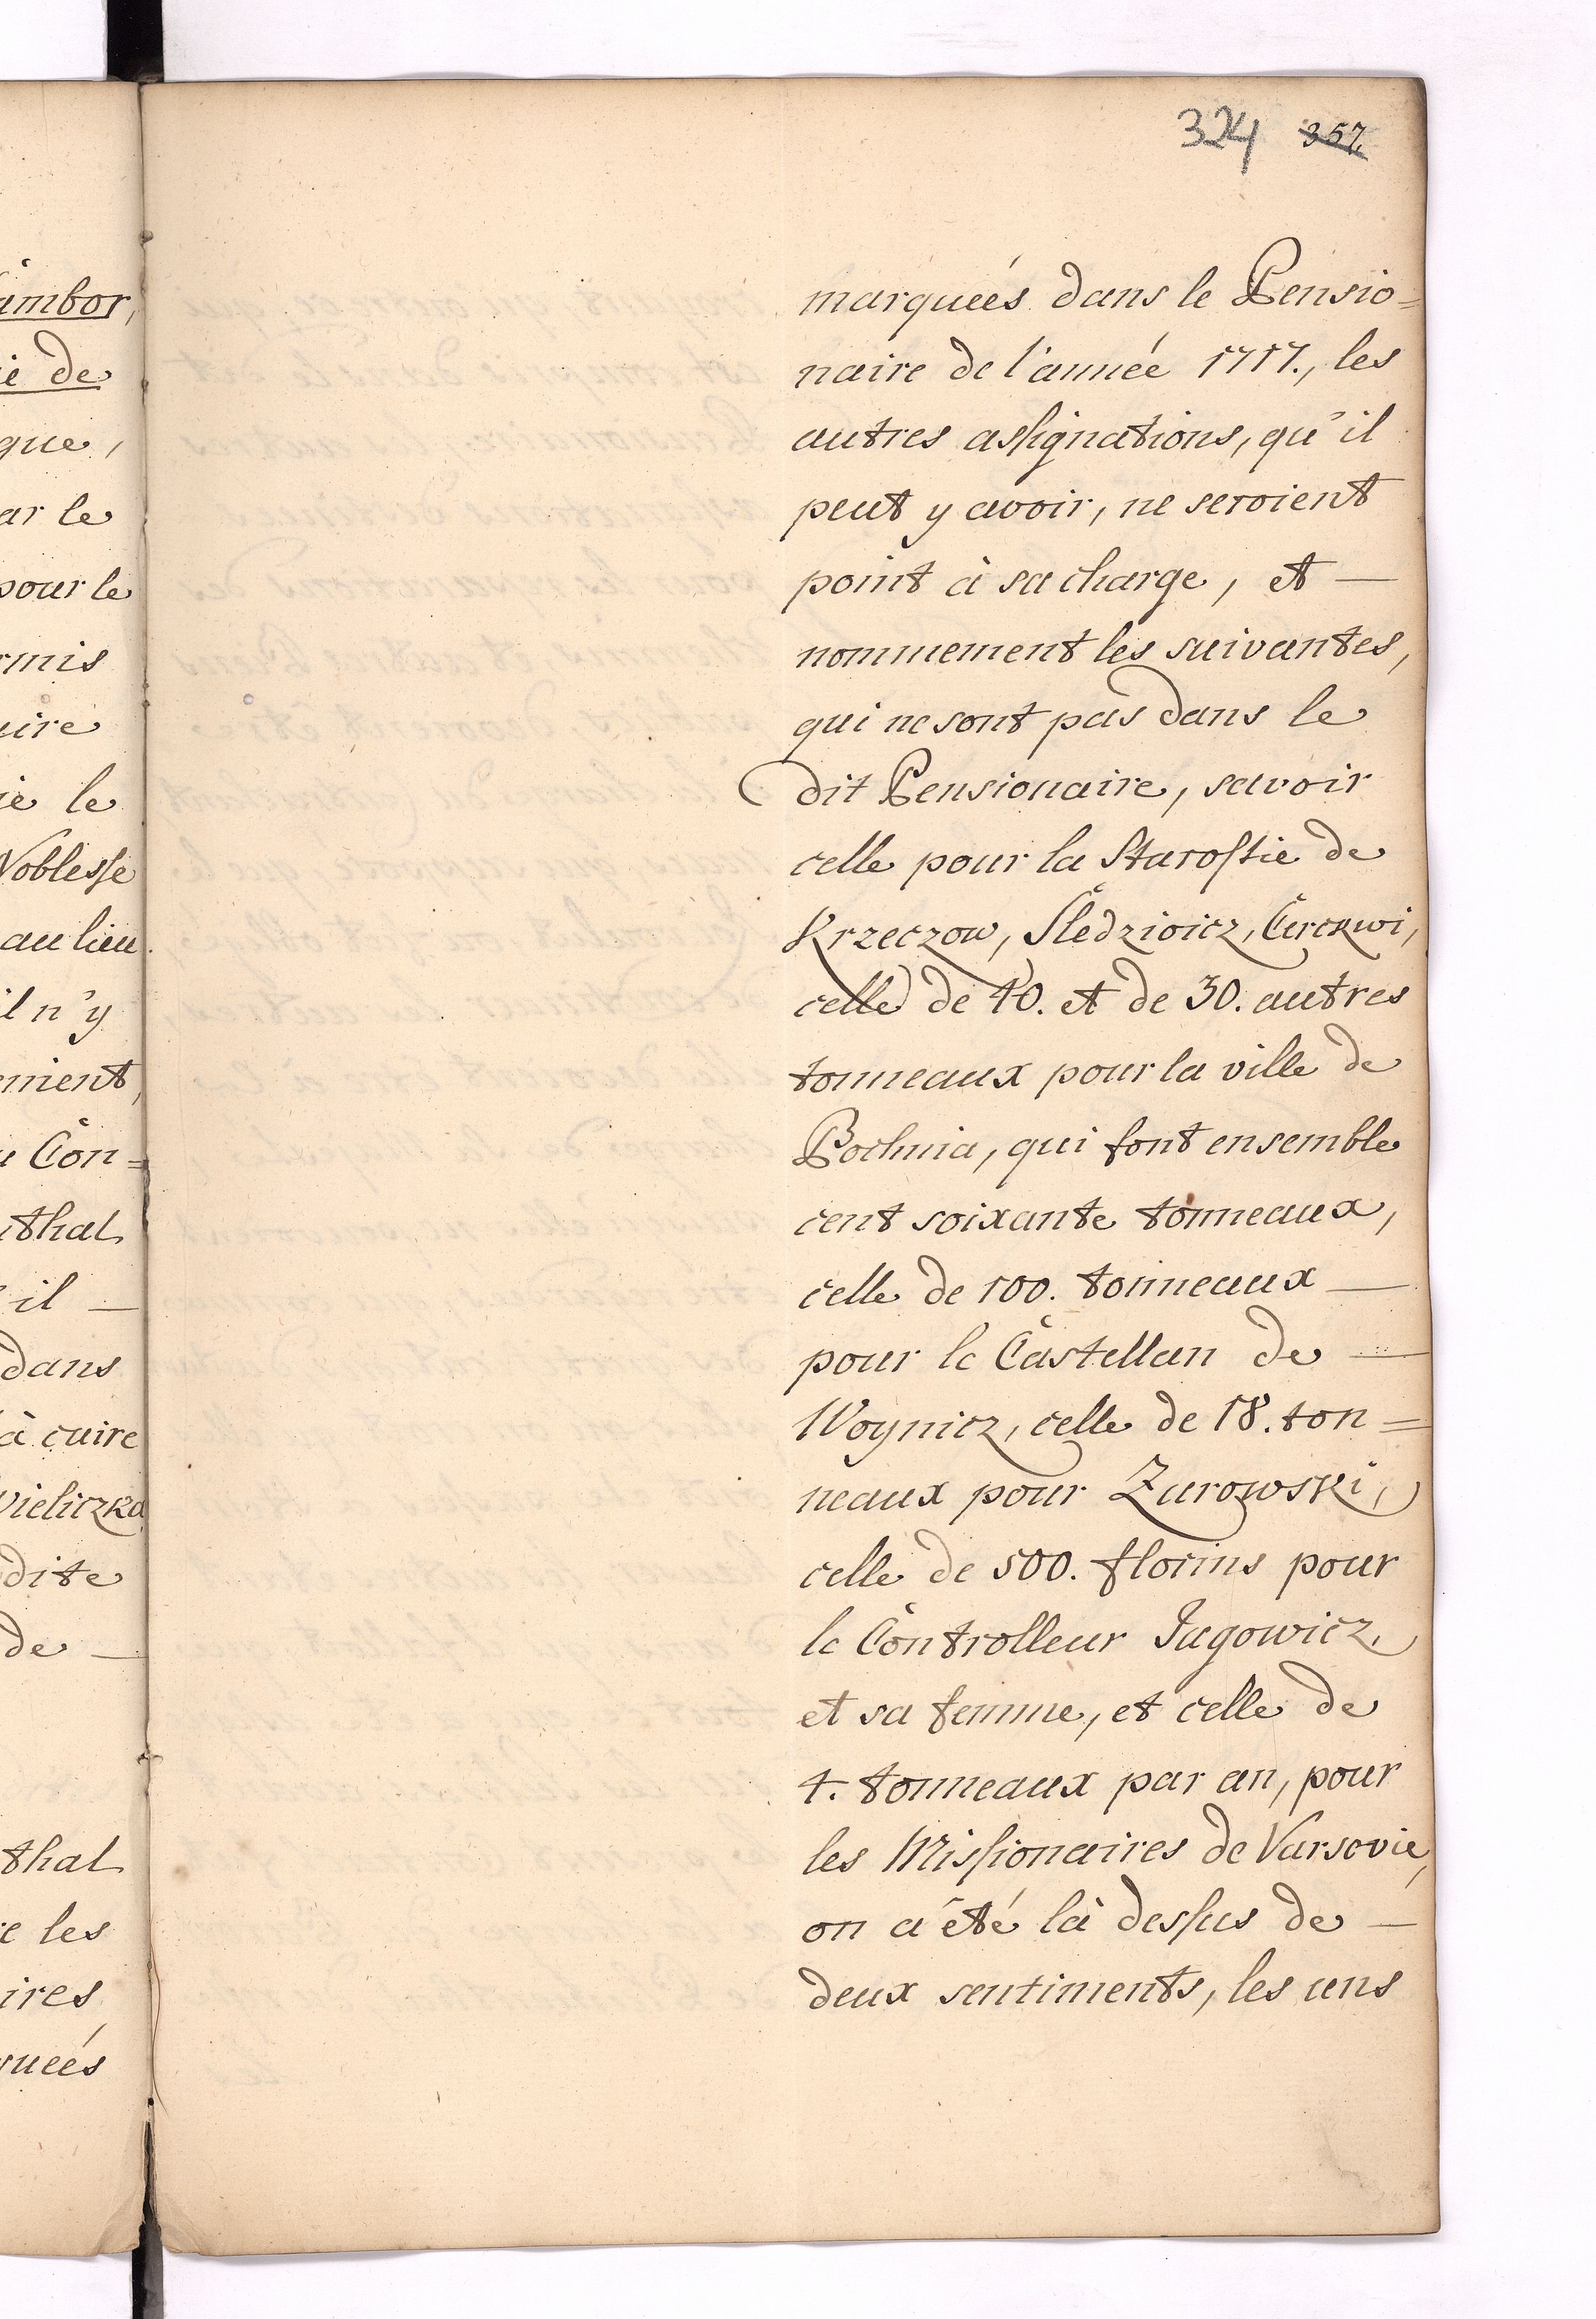 324 357.
marqueés dans le Pensio=
naire de l'année 1717., les
autres assignations, qu'il
peut y avoir, ne seroient
point à sa charge, et —
nommement les suivantes,
qui ne sont pas dans le
dit Pensionaire, savoir
celle pour la Starostie de
Krzeczow,
celle de 40. et de 30. autres
tonneaux pour la ville de
Bochnia, qui font ensemble
cent soixante tonneaux,
celle de 100. tonneaux —
pour le Castellan de —
Woynicz, celle de 18. ton=
neaux pour Zurowski,
celle de 500. florins pour
le Controlleur Jagowicz,
et sa femme, et celle de
4. tonneaux par an, pour
les Missionaires de Varsovie,
on a été là dessus de —
deux sentiments, les uns
ambor,
ie de
que,
ar le
pour le
rmis
uire
ie le
Noblesse
au lieu
il n'y
ement,
u Con=
thal
il —
dans
à cuire
Wieliczka
dite
de —
thal
e les
ires,
queés